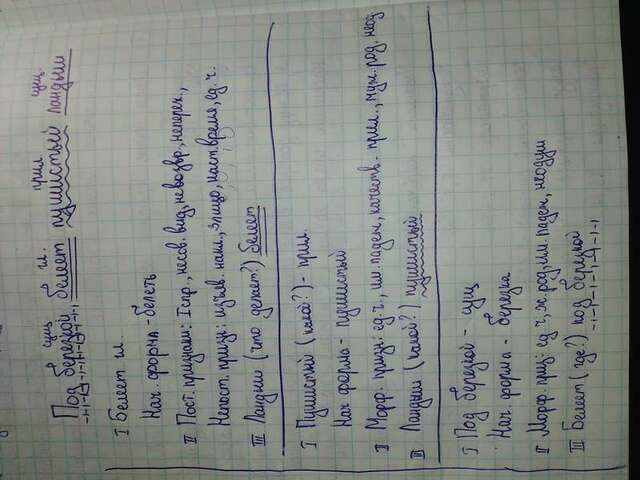 сущ. гл. прил. сущ.
Под берёзкой белеет пушистый ландыш
I Белеет гл.
Нач. форма - белеть
II Пост. признаки: I спр., несов. вид, невозвр., неперех.,
Непост. призн: изъяв. накл., 3 лицо, наст. время, ед. ч.
III Ландыш (что делает?) белеет
I Пушистый (какой?) - прил.
Нач. форма - пушистый
II Морф. призн: ед. ч., им. падеж, качеств. прил., муж. род, неод
III Ландыш (какой?) пушистый
I Под берёзкой - сущ
Нач. форма - берёзка
II Морф. приз: ед ч, ж. род, падеж, неодуш
III Белеет (где?) под берёзкой